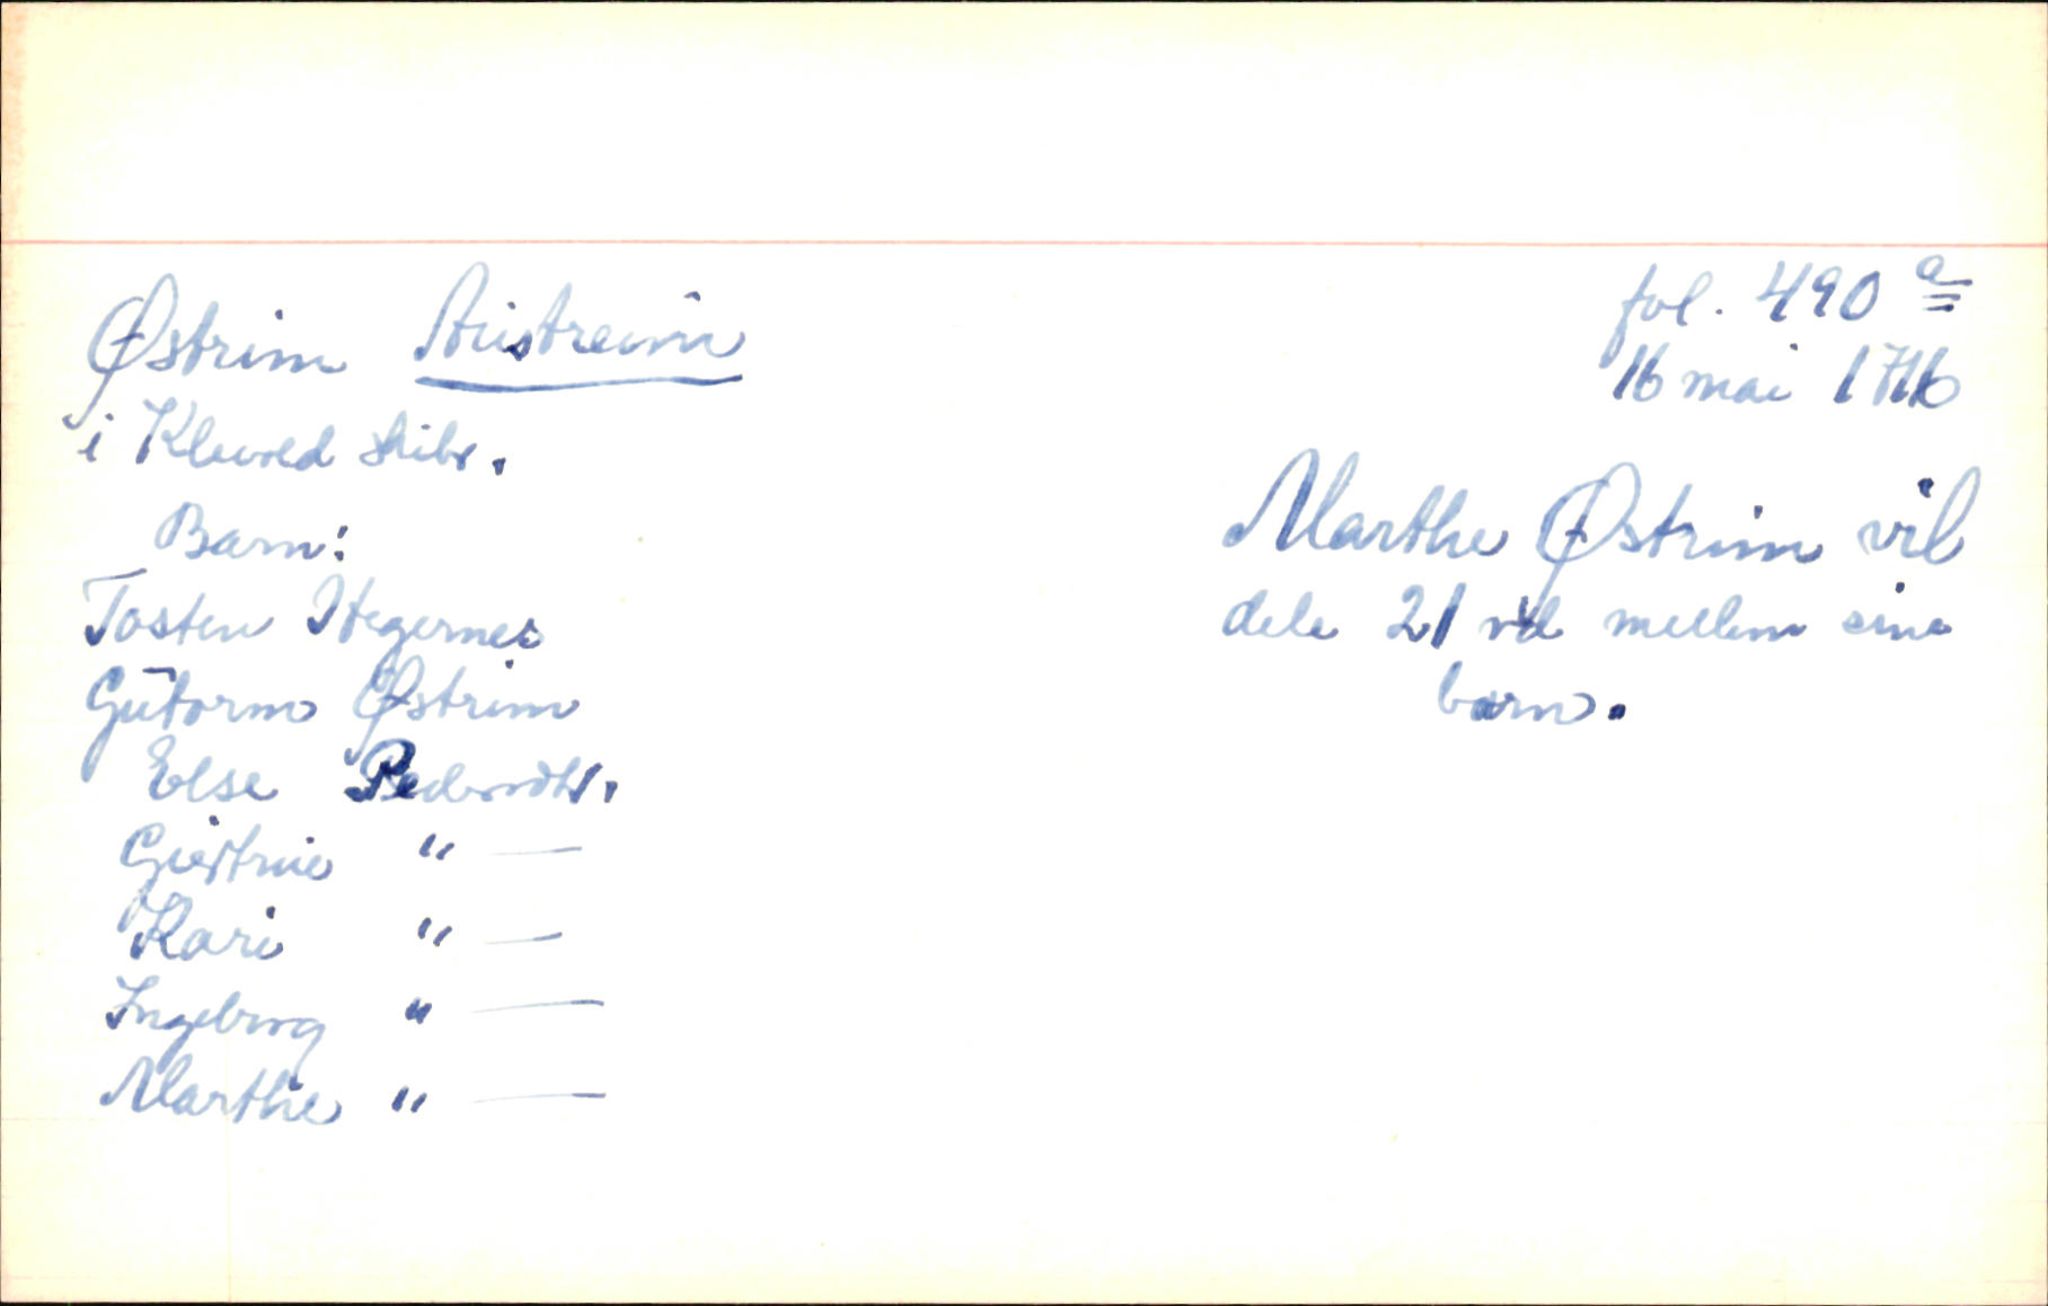 Østrim Austreim
i Klevold skibr.
Barn:
Tosten Hegernes
Gutorm Østrim
Else Pedersdtr.
Giertrue " —
Kari " —
Ingeborg " —
Marthe " —
fol. 490 a
16 mai 1716
Marthe Østrim vil
dele 21 rd mellem sine
barn.